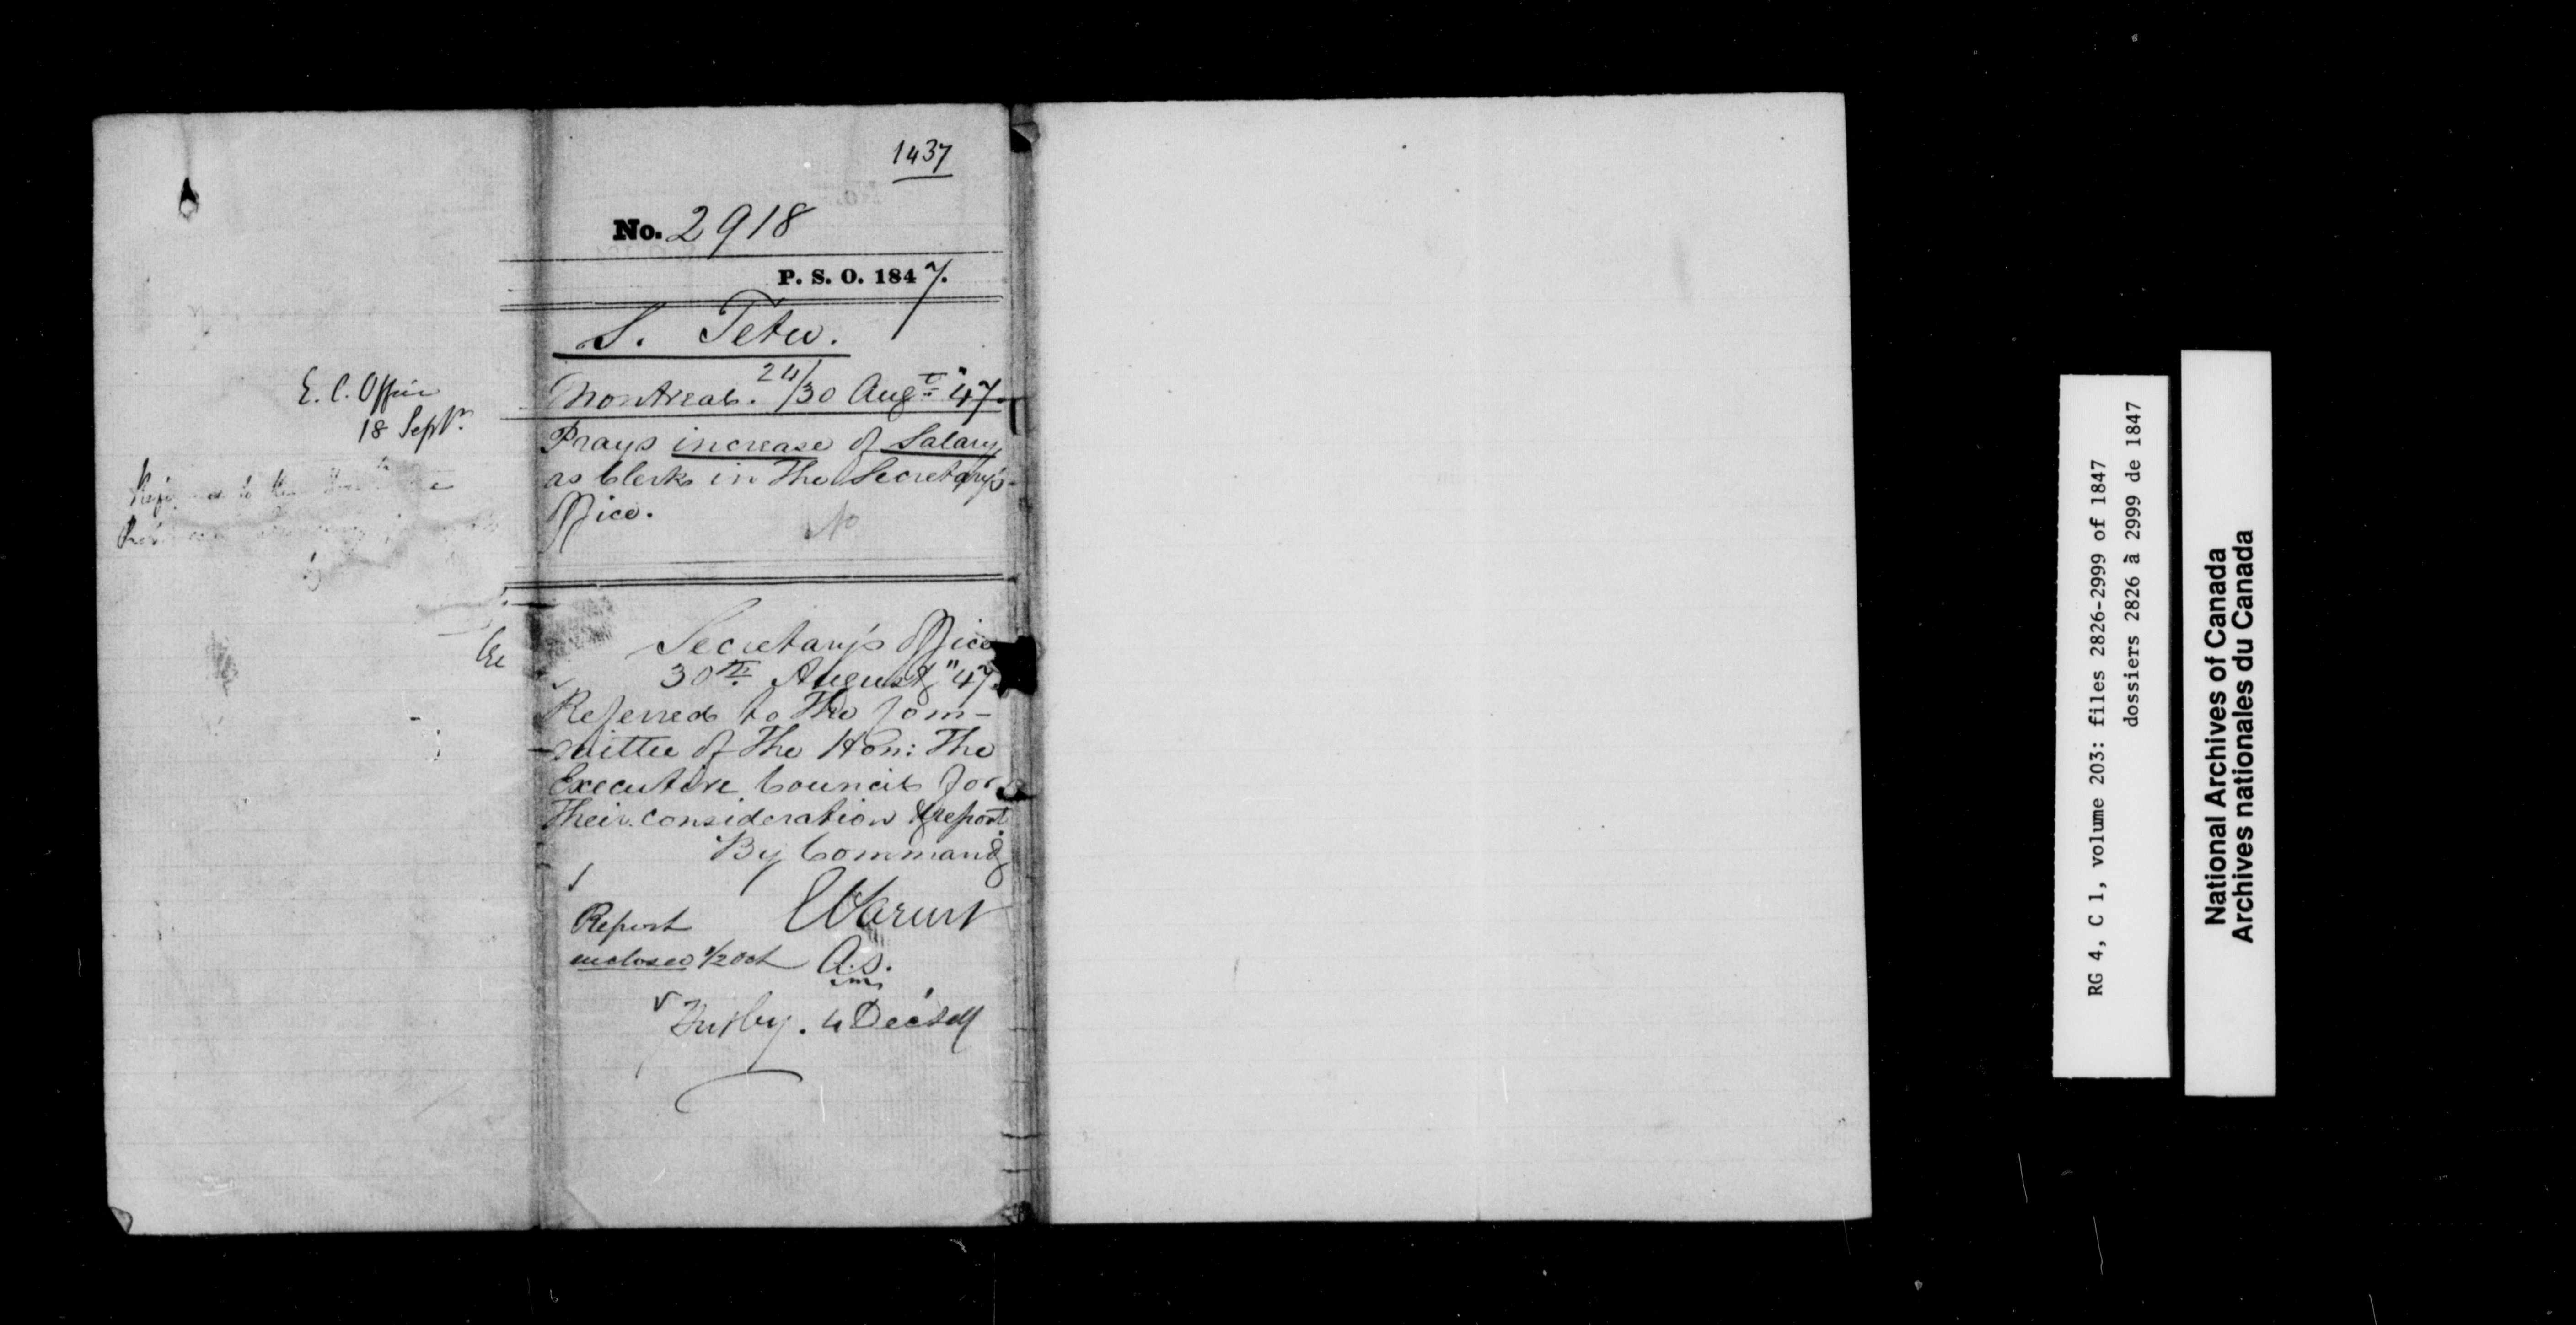 1437
No. 2918
P. S. O. 1847.
S. Tetu.
Montreal. 24/30 Augt "47.
Prays increase of Salary
as Clerk in The Secretary's
Office.
E. C. Office
18 Septr.
to the
Secretary's Office
30th August "47.
Referred to The Com-
mittee of The Hon: The
Executive Council for
Their consideration & report
By Command
Report
enclosed 1/2 Oct A.S.
4 Dec
RG 4, C 1, volume 203: files 2826-2999 of 1847
dossiers 2826 à 2999 de 1847
National Archives of Canada
Archives nationales du Canada